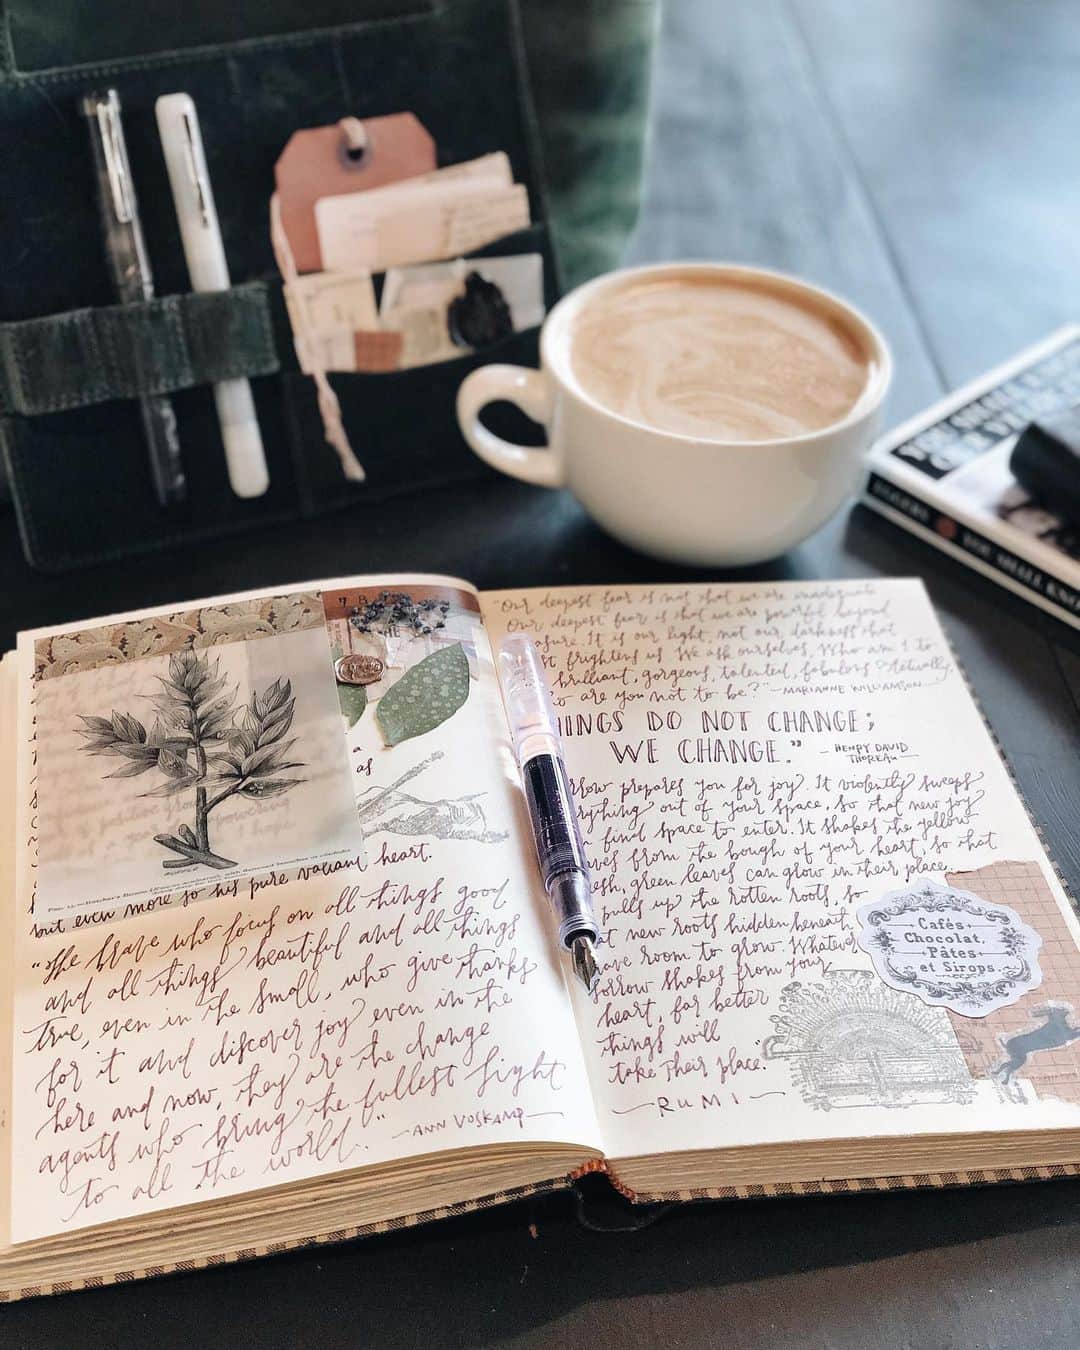 a
as
but even more so his pure valiant heart.
"The brave who focus on all things good
and all things beautiful and all things
true, even in the small, who give thanks
for it and discover joy even in the
here and now, they are the change
agents who bring the fullest Light
to all the world."
—ANN VOSKAMP—
"Our deepest fear is not that we are inadequate
Our deepest fear is that we are powerful beyond
asure. It is our light, not our darkness that
st frightens us. We ask ourselves, Who am I to
brilliant, gorgeous, talented, fabulous? Actually,
o are you not to be?" —MARIANNE WILLIAMSON
HINGS DO NOT CHANGE;
WE CHANGE."
—HENRY DAVID
THOREAU—
rrow prepares you for joy. It violently sweeps
rything out of your space, so that new joy
find space to enter. It shakes the yellow
aves from the bough of your heart, so that
resh, green leaves can grow in their place.
pulls up the rotten roots, so
at new roots hidden beneath
have room to grow. Whatever
sorrow shakes from your
heart, far better
things will
take their place."
—RUMI—
Cafés,
Chocolat,
Pâtes
et Sirops.
YOU SHALL KNOW